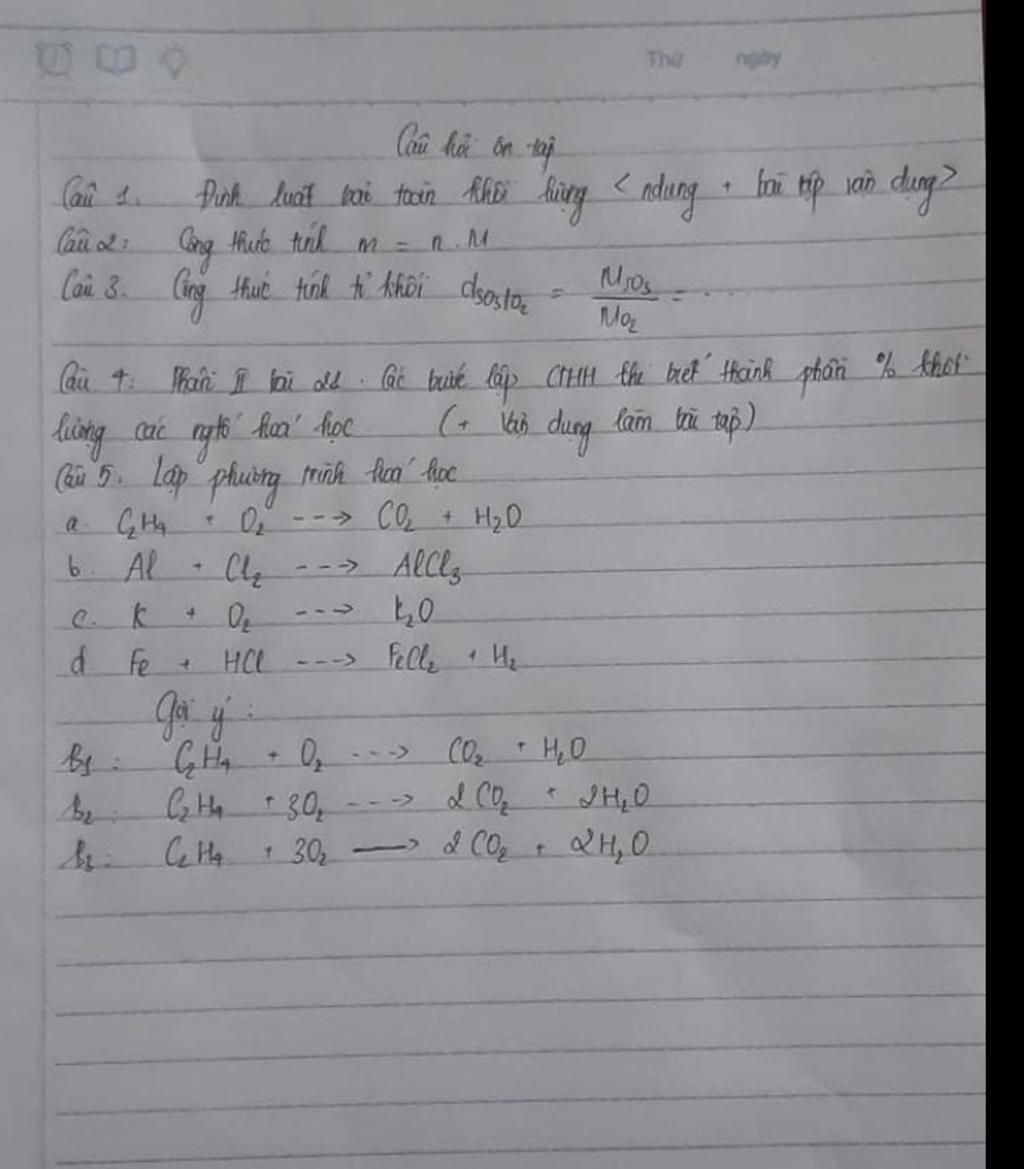 Thứ ngày
Câu hỏi ôn tập
Câu 1. Định luật bảo toàn khối lượng < ndung + bài tập vận dụng >
Câu 2: Công thức tính m = n . M
Câu 3. Công thức tính tỉ khối dSO₃/O₂ = MSO₃ / MO₂ = ...
Câu 4: Phần II bài 21. Các bước lập CTHH khi biết thành phần % khối
lượng các ngtố hoá học (+ Vận dụng làm bài tập)
Câu 5. Lập phương trình hoá học
a. C₂H₄ + O₂ ---> CO₂ + H₂O
b. Al + Cl₂ ---> AlCl₃
c. K + O₂ ---> K₂O
d Fe + HCl ---> FeCl₂ + H₂
Gợi ý:
B₁: C₂H₄ + O₂ ---> CO₂ + H₂O
B₂: C₂H₄ + 3O₂ ---> 2CO₂ + 2H₂O
B₃: C₂H₄ + 3O₂ ⟶ 2CO₂ + 2H₂O